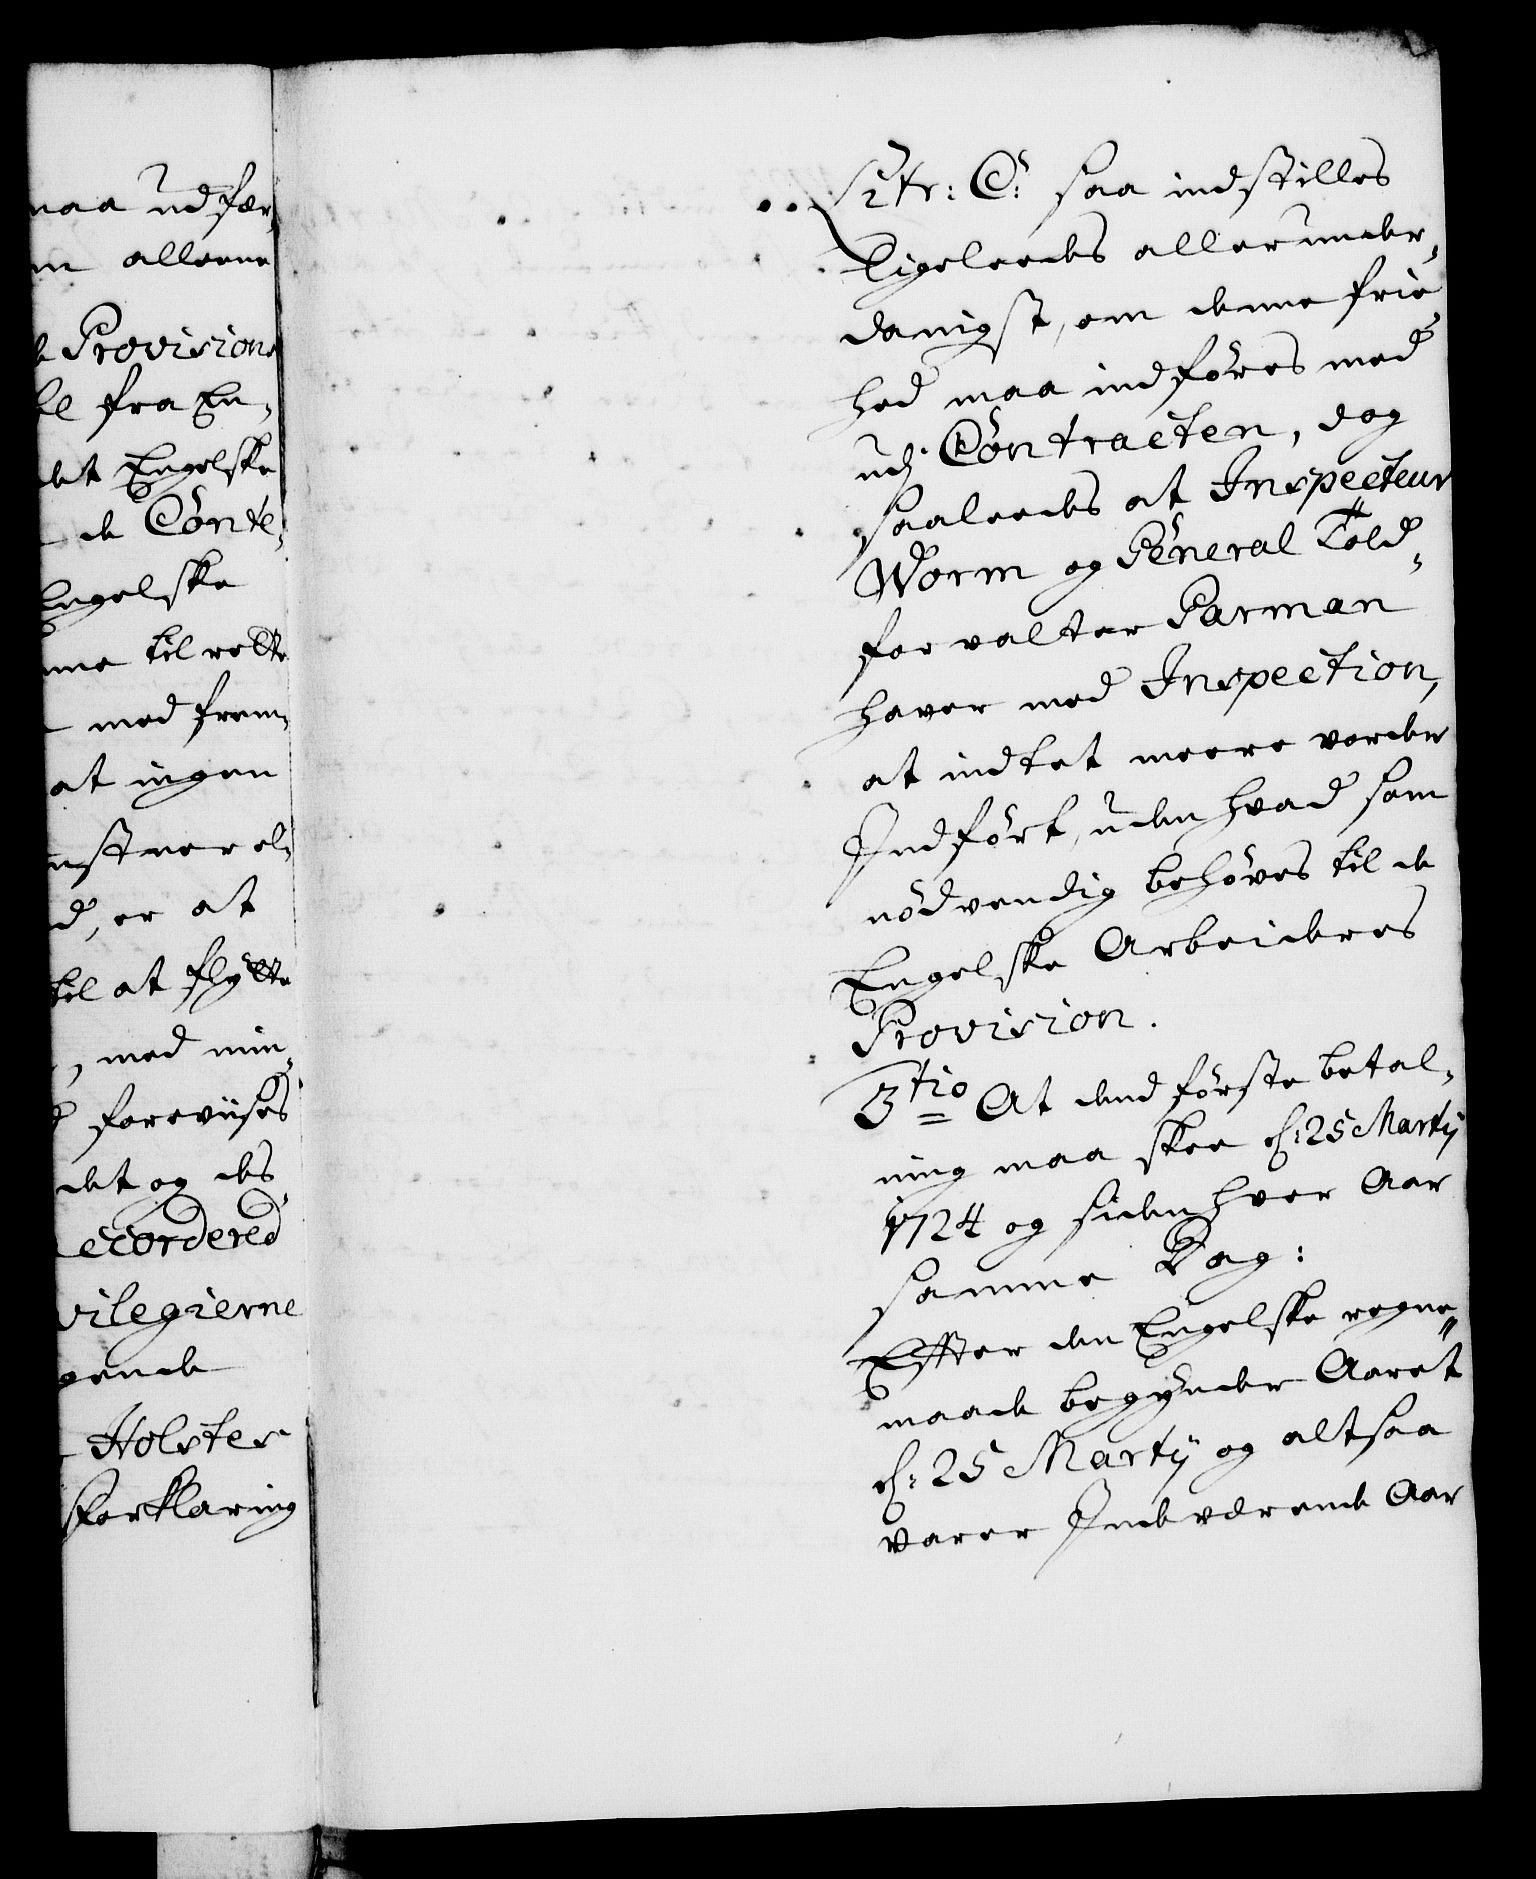 naa udfær¬
m alleene
Provisions
fra En¬
det Engelske
de Conte¬
Engelske
til rette
med frem¬
at ingen
nstner el¬
d, er at
til at flÿtte
, med min¬
foreviises
det og des
ccordered
vilegierne
gende
Holster
Forklaring
Litr: C: saa indstilles
Ligeleedes allerunder¬
danigst, om denne frie¬
hed maa indföres med
udj Contracten, dog
saaleedes at Inspecteur
Worm og General Told¬
forvalter Parman
haver med Inspection,
at indtet meere vorder
Indfört, uden hvad som
nödvendig behöves til de
Engelske Arbeideres
Provision.
3tio At dend förste betal¬
ning maa skee d: 25 Martij
1724 og siden hver Aar
samme Dag:
Effter den Engelske regne¬
maade begÿnder Aaret
d: 25 Martij og altsaa
varer Indeværende Aar